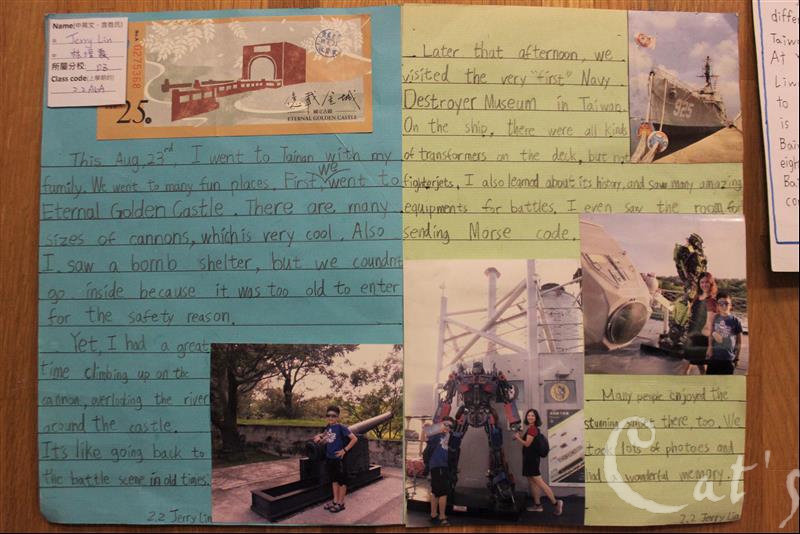 Name(中英文,唐爸氏)
Jerry Lin
所屬分校: 03
Class code(上學期的)
2.2 A2A
No.A 0275368
25.00
億載金城
國定古蹟
ETERNAL GOLDEN CASTLE
This Aug, 23rd, I went to Tainan with my
family. We went to many fun places. First we went to
Eternal Golden Castle. There are many
sizes of cannons, which is very cool. Also
I saw a bomb shelter, but we coundn't
go inside because it was too old to enter
for the safety reason.
Yet, I had a great
time climbing up on the
cannon, overlooking the river
around the castle.
It's like going back to
the battle scene in old times.
2.2 Jerry Lin
Later that afternoon, we
visited the very "first" Navy
Destroyer Museum in Taiwan.
On the ship, there were all kinds
of transformers on the deck, but not
fighterjets. I also learned about its history, and saw many amazing
equipments for battles. I even saw the room for
sending Morse code.
925
Many people enjoyed the
stunning sunset there too. We
took lots of photoes and
had a wonderful memory!
2.2 Jerry Lin
Cat's
differ
Taiwa
At Y
Liw
to
is
Bai
eigh
Bai
co